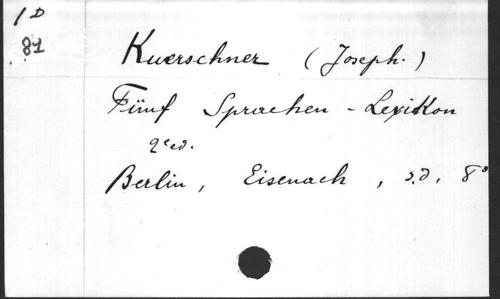 1 D
81
Kuerschner (Joseph.)
Fünf Sprachen - Lexikon
2e ed.
Berlin, Eisenach, s.d. 8°